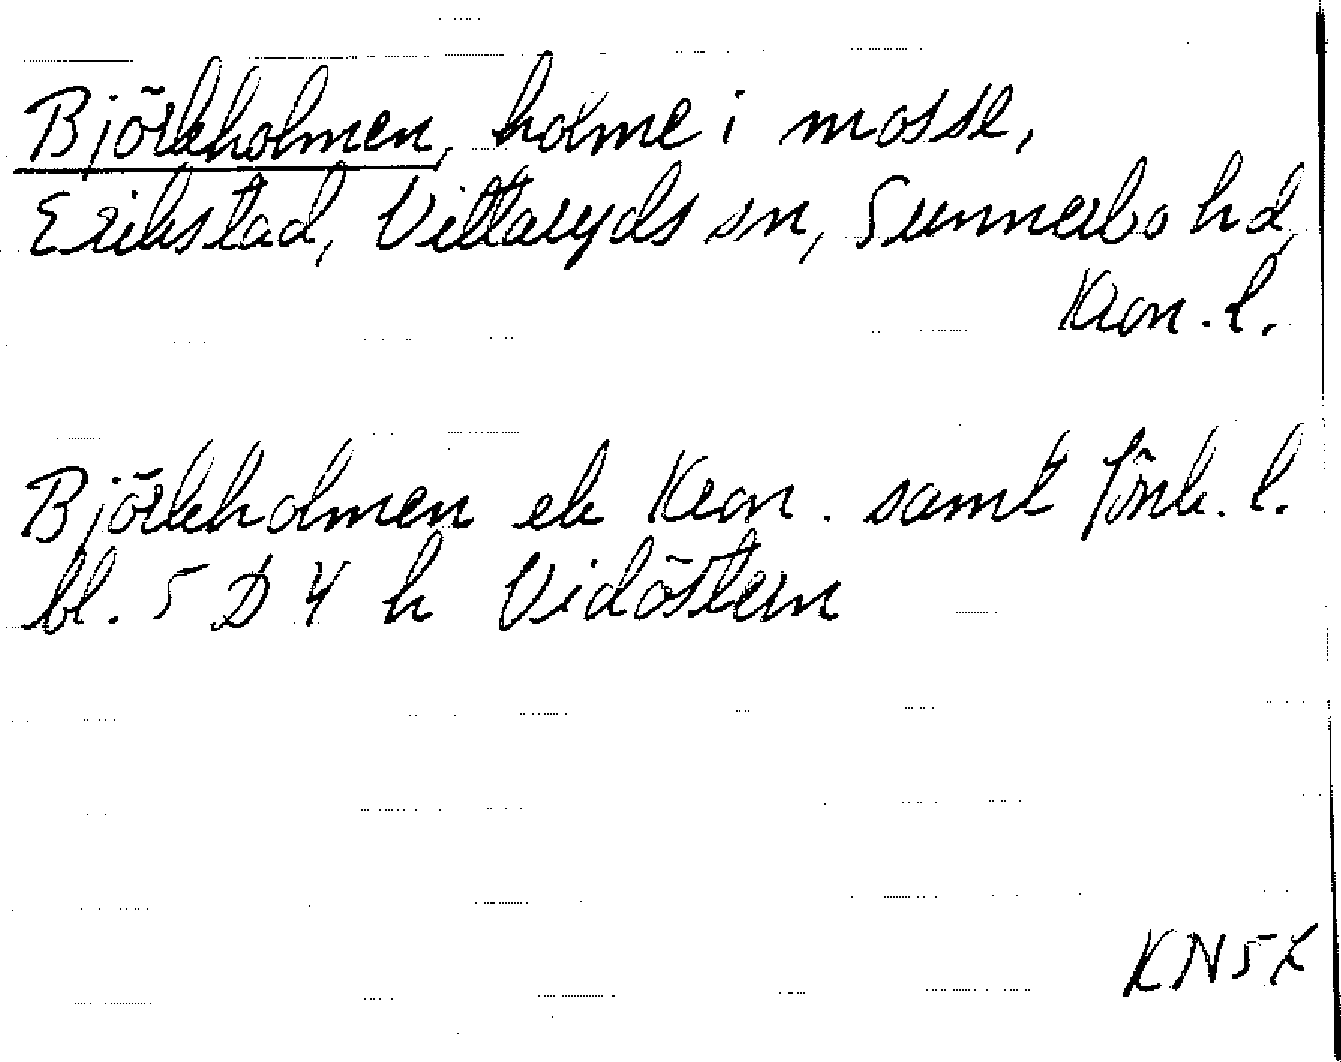 Björkholmen, holme i mosse,
Erikstad, Vittaryds sn, Sunnerbo hd,
Kron. l.
Björkholmen ek Kron. samt Jönk. l.
bl. 5 D 4 h Vidöstern